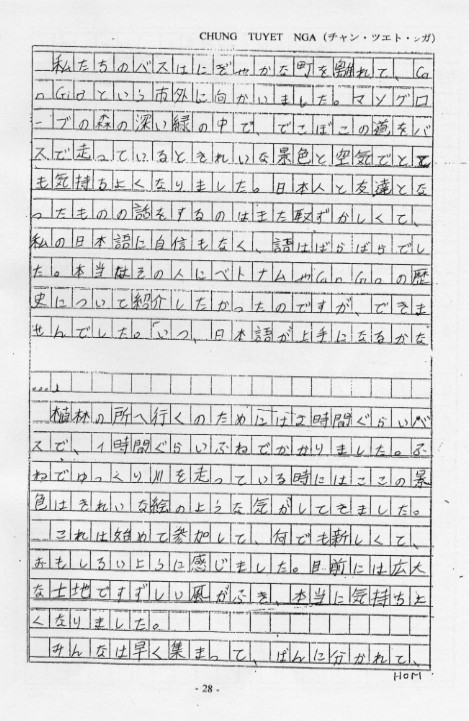 CHUNG TUYET NGA (チャン・ツエト・ンガ)
私たちのバスはにぎやかな町を離れて、Ca
n Gioという市外に向かいました。マングロ
ーブの森の深い緑の中で、でこぼこの道をバ
スで走っているときれいな景色と空気でとて
も気持ちよくなりました。日本人と友達とな
ったものの話をするのはまた恥ずかしくて、
私の日本語に自信もなく、語はばらばらでし
た。本当はその人にベトナムやCan Gioの歴
史について紹介したかったのですが、できま
せんでした。「いつ、日本語が上手になるかな
…」
植林の所へ行くのためには2時間ぐらいバ
スで、1時間ぐらいふねでかかりました。ふ
ねでゆっくり川を走っている時にはここの景
色はきれいな絵のような気がしてきました。
これは始めて参加して、何でも新しくて、
おもしろいように感じました。目前には広大
な土地ですずしい風がふき、本当に気持ちよ
くなりました。
みんなは早く集まって、はんに分かれて、
HOM
- 28 -